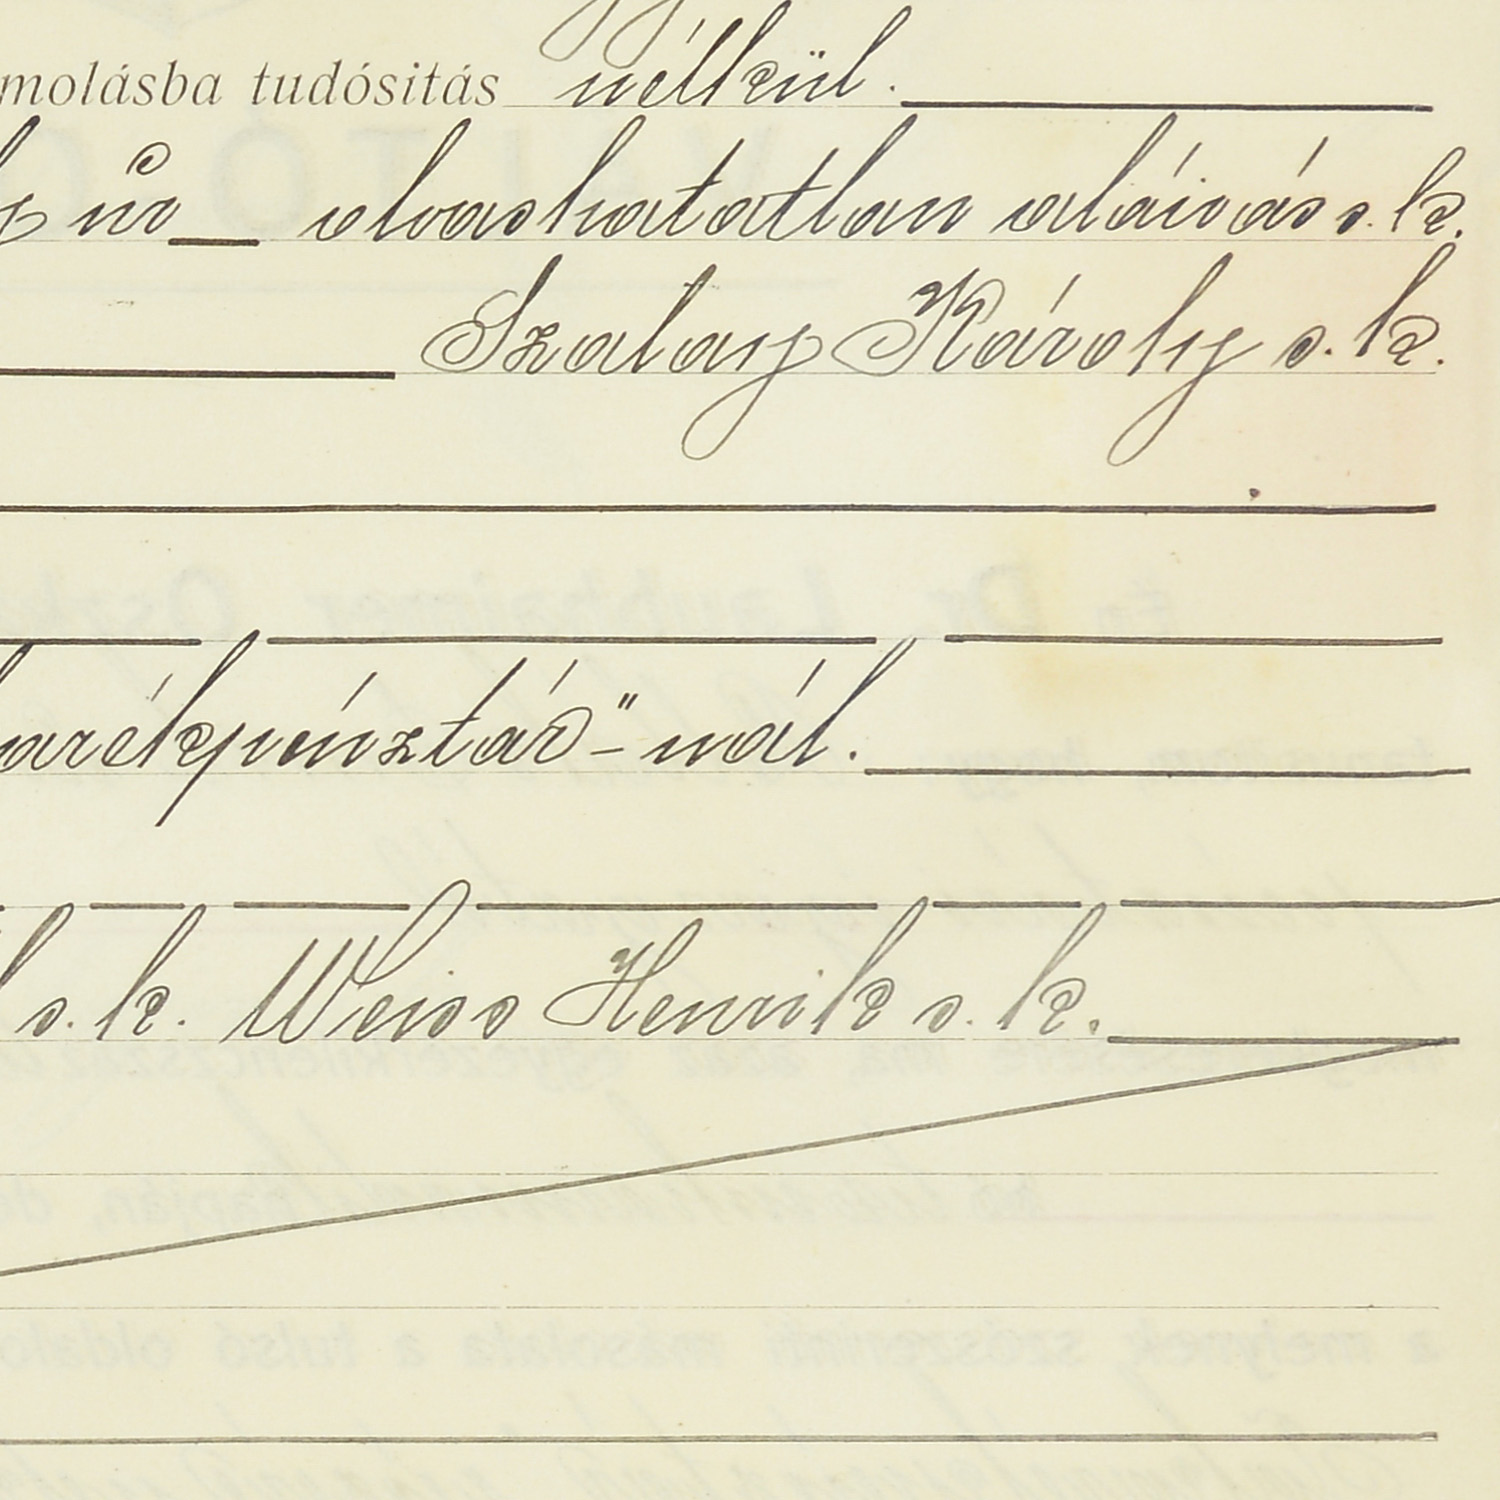 molásba tudósitás nélkül.
úr olvashatatlan aláirás s. k.
Szalay Károly s. k.
arékpénztár"-nál.
s. k. Weiss Henrik s. k.